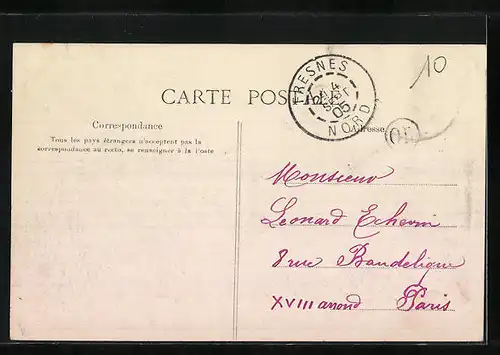 10
FRESNES
4
SEPT
05
NORD
CARTE POSTALE
Correspondance
Adresse
OR
Tous les pays étrangers n'acceptent pas la
correspondance au recto, se renseigner à la Poste
Monsieur
Leonard Echevin
8 rue Baudelique
XVIII arrond Paris